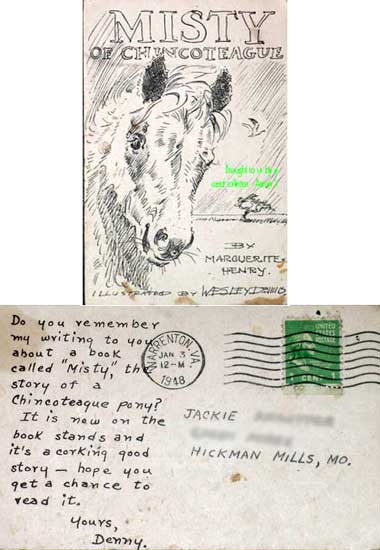 MISTY
OF CHINCOTEAGUE
Brought to us by
card collector Aaron
BY
MARGUERITE
HENRY.
ILLUSTRATED BY WESLEY DENNIS
Do you remember
my writing to you
about a book
called "Misty," the
story of a
Chincoteague pony?
It is now on the
book stands and
it's a corking good
story — hope you
get a chance to
read it.
Yours,
Denny.
WARRENTON, VA.
JAN 3
12-M
1948
UNITED
STATES
POSTAGE
1 CENT 1
JACKIE
HICKMAN MILLS, MO.